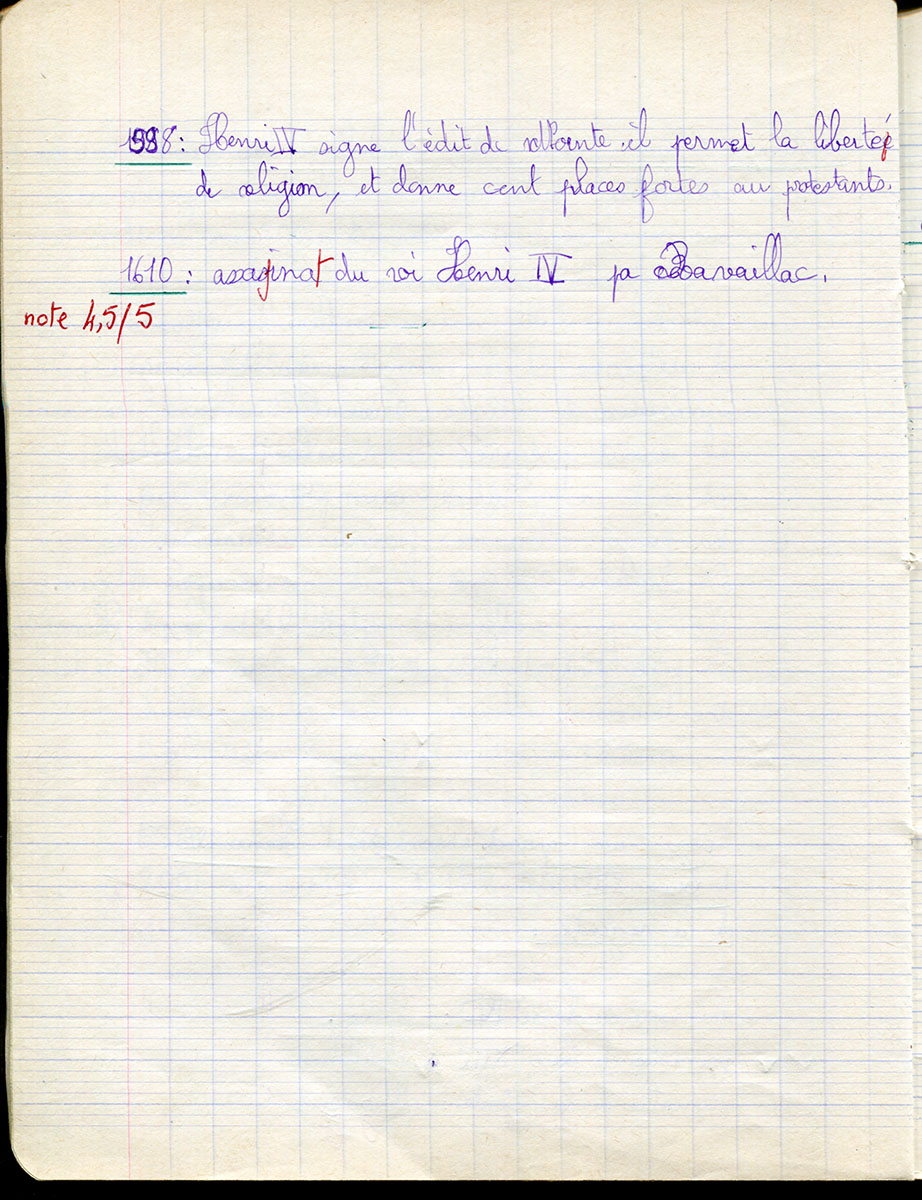 1598 : Henri IV signe l'édit de Nantes. il permet la liberté
de religion, et donne cent places fortes au protestants.
1610 : assasinat du roi Henri IV pa Ravaillac.
note 4,5/5